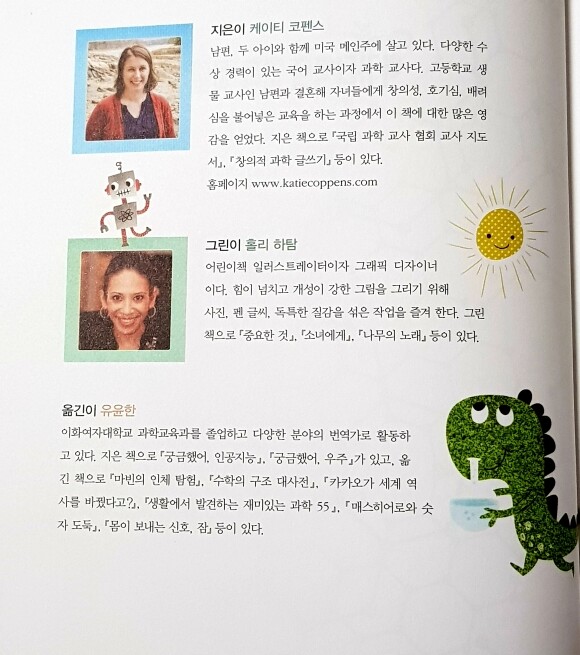 지은이 케이티 코펜스
남편, 두 아이와 함께 미국 메인주에 살고 있다. 다양한 수
상 경력이 있는 국어 교사이자 과학 교사다. 고등학교 생
물 교사인 남편과 결혼해 자녀들에게 창의성, 호기심, 배려
심을 불어넣은 교육을 하는 과정에서 이 책에 대한 많은 영
감을 얻었다. 지은 책으로 『국립 과학 교사 협회 교사 지도
서』, 『창의적 과학 글쓰기』 등이 있다.
홈페이지 www.katiecoppens.com
그린이 홀리 하탐
어린이책 일러스트레이터이자 그래픽 디자이너
이다. 힘이 넘치고 개성이 강한 그림을 그리기 위해
사진, 펜 글씨, 독특한 질감을 섞은 작업을 즐겨 한다. 그린
책으로 『중요한 것』, 『소녀에게』, 『나무의 노래』 등이 있다.
옮긴이 유윤한
이화여자대학교 과학교육과를 졸업하고 다양한 분야의 번역가로 활동하
고 있다. 지은 책으로 『궁금했어, 인공지능』, 『궁금했어, 우주』가 있고, 옮
긴 책으로 『마빈의 인체 탐험』, 『수학의 구조 대사전』, 『카카오가 세계 역
사를 바꿨다고?』, 『생활에서 발견하는 재미있는 과학 55』, 『매스히어로와 숫
자 도둑』, 『몸이 보내는 신호, 잠』 등이 있다.